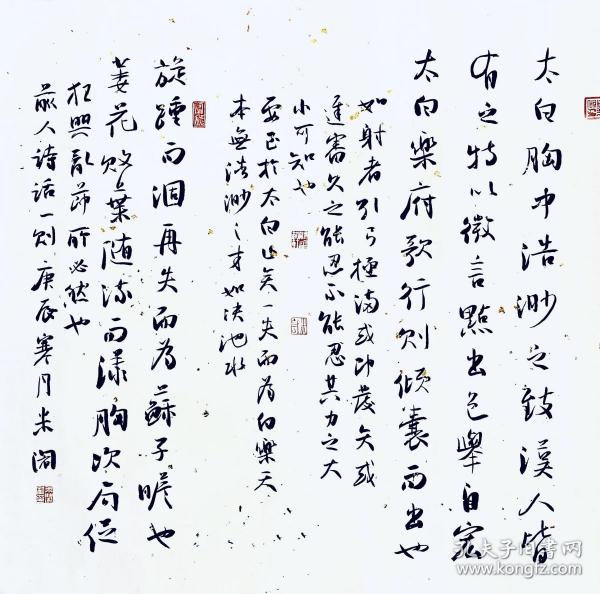 太白胸中浩渺之致漢人皆
有之特以微言點出包舉自宏
太白樂府歌行則傾囊而出也
如射者引弓極滿或即發矢或
遲審久之能忍不能忍其力之大
小可知也
要至於太白止矣一失而為白樂天
本無浩渺之才如決池水
旋踵而涸再失而為蘇子瞻也
萎花敗葉隨流而漾胸次局促
狂興亂節所必然也
前人詩話一則庚辰寒月朱阁
孔夫子旧书网
www.kongfz.com